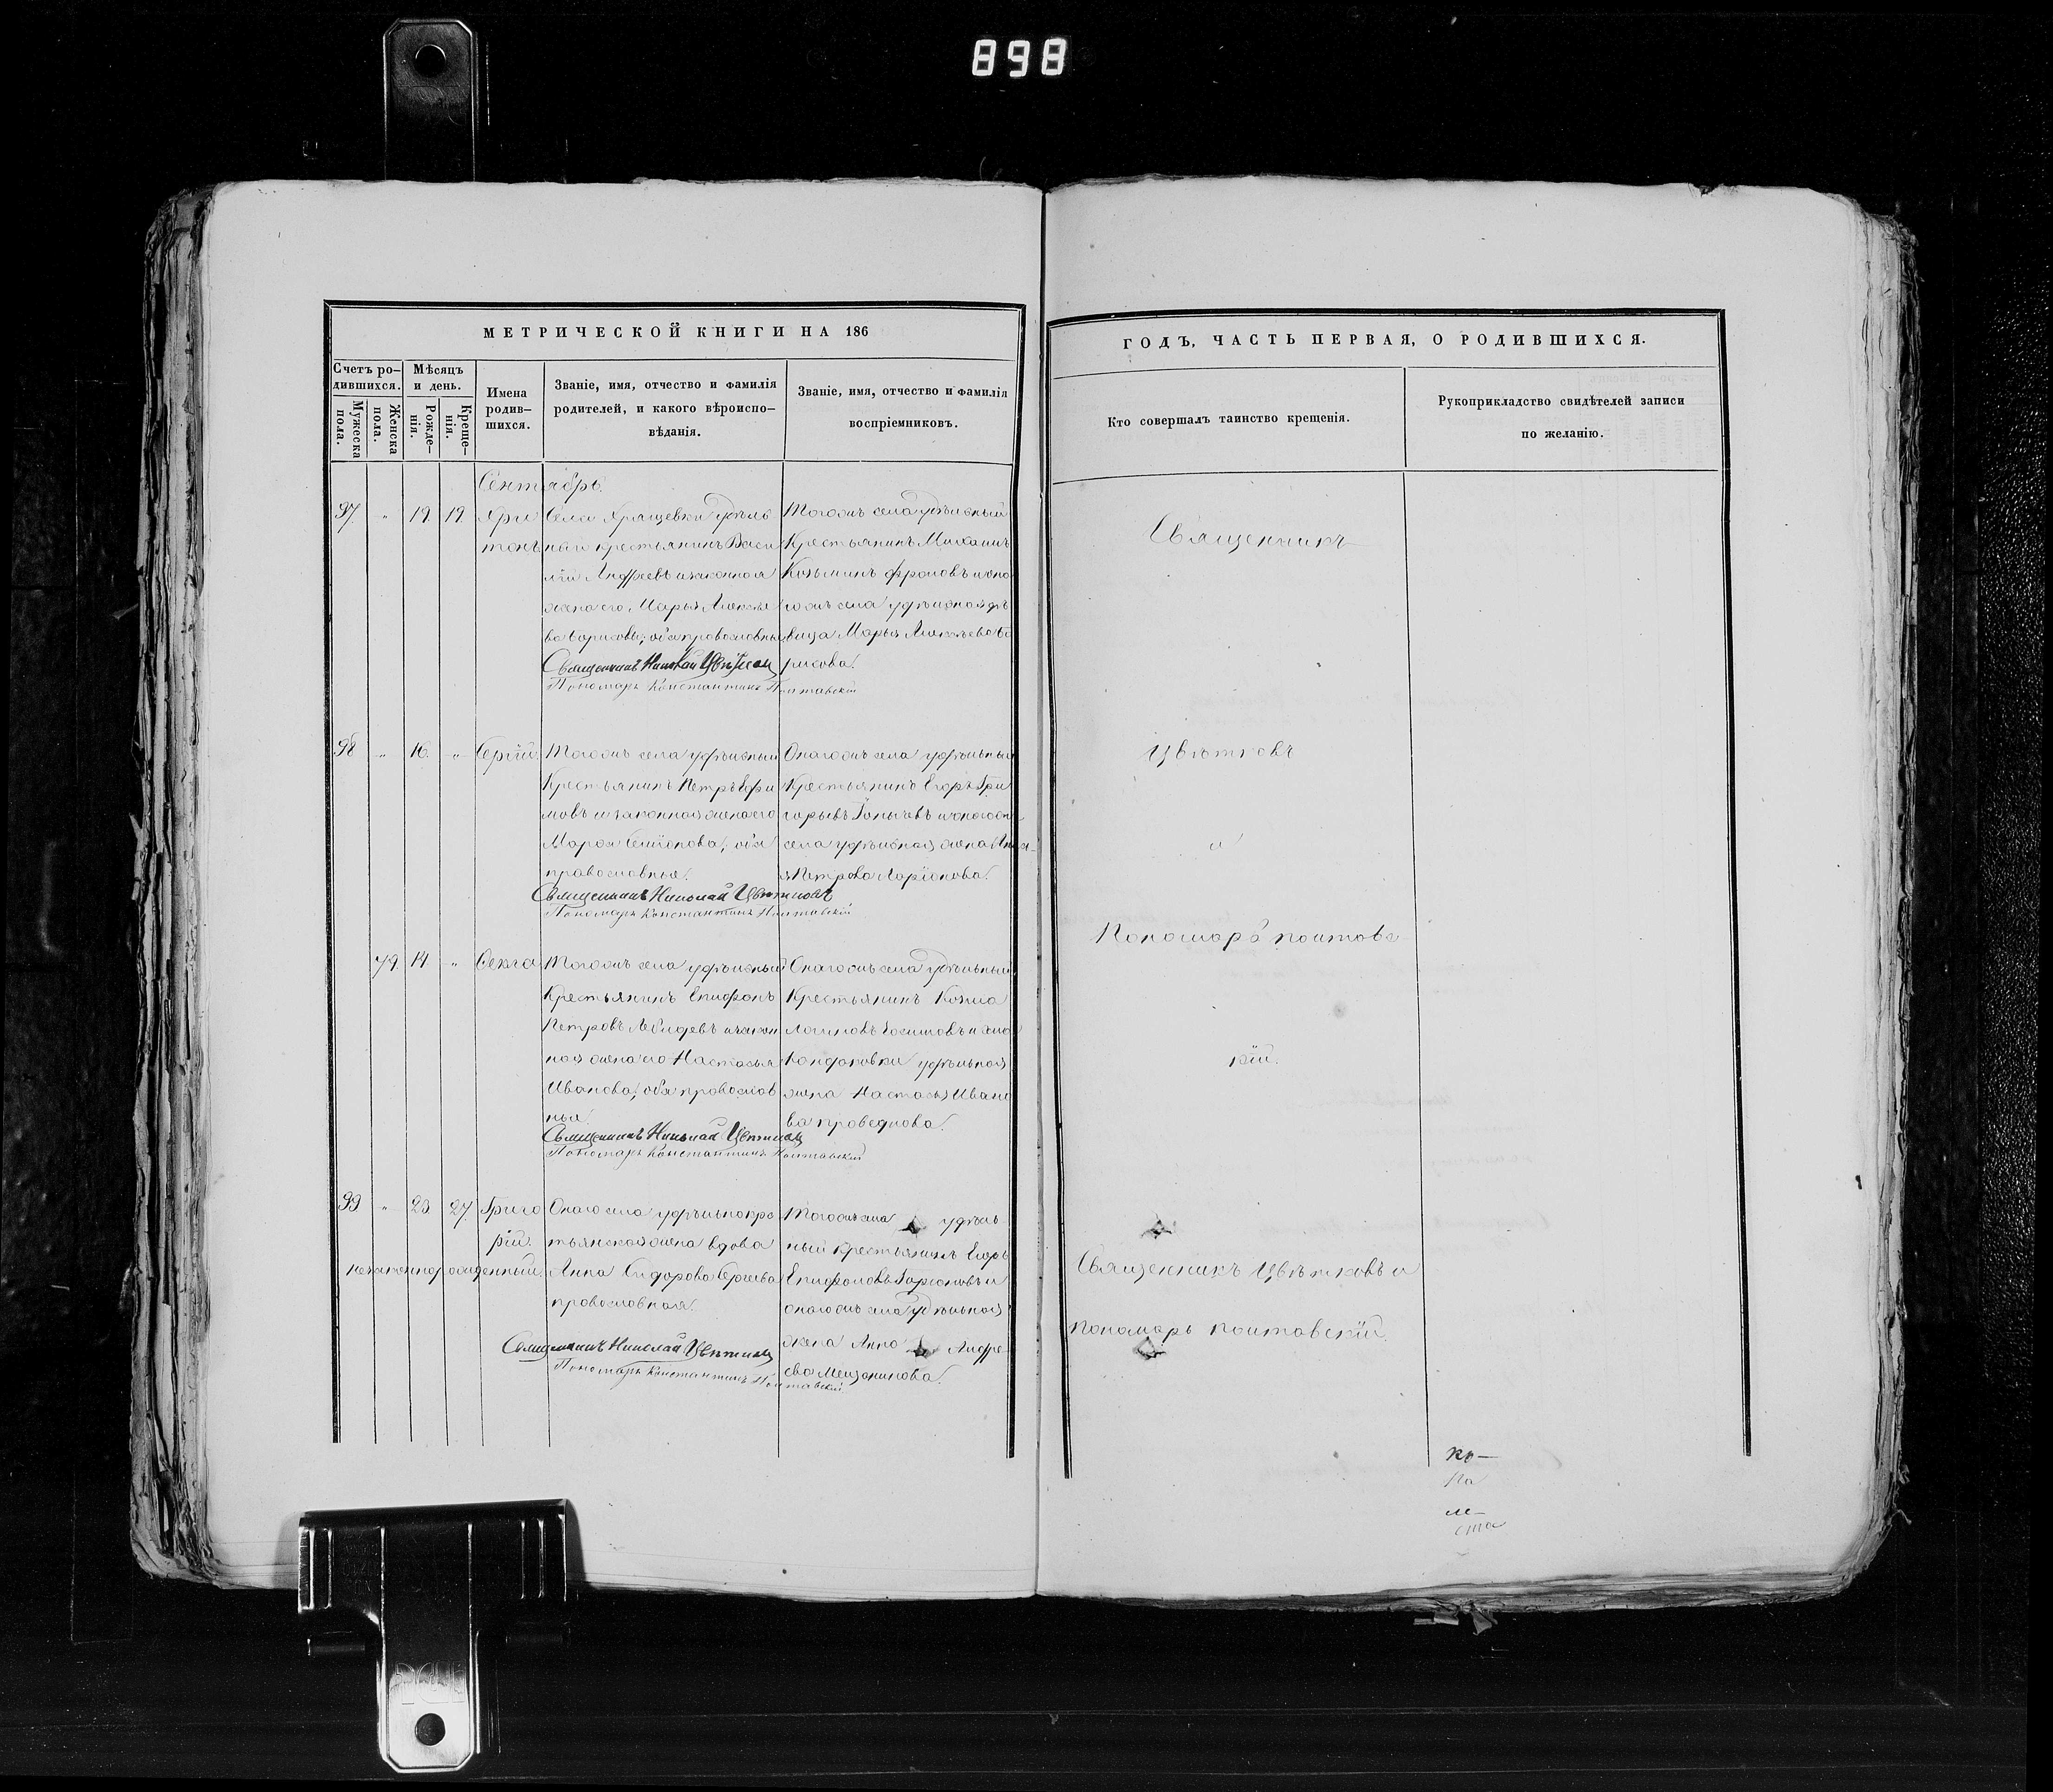 898
МЕТРИЧЕСКОЙ КНИГИ НА 186
Счетъ ро-
дившихся.
Мужеска
пола.
Женска
пола.
Мѣсяцъ
и день.
Рожде-
нія.
Креще-
нія.
Имена
родив-
шихся.
Званіе, имя, отчество и фамилія
родителей, и какого вѣроиспо-
вѣданія.
Званіе, имя, отчество и фамилія
воспріемниковъ.
Сентябрь.
97. " 19. 19. Хри
тонъ
Села Хрящевки удѣль
ный крестьянинъ Васи
лій Андреевъ и законная
жена его, Марья Алексѣе
ва Борисовы; оба православныя
Священникъ Николай Цвѣтковъ
Пономарь Константинъ Полтавскій
Тогожъ села удѣльный
Крестьянинъ Михаилъ
Козьминъ Фроловъ и она
гожъ села удѣльная дѣ
вица Марья Алексѣева Бо
рисова.
98 " 16. " Сергій.
Тогожъ села удѣльный
Крестьянинъ Петръ Ефи
мовъ и законная жена его
Марья Семёнова; оба
православныя.
Священникъ Николай Цвѣтковъ
Пономарь Константинъ Полтавскій
Онагожъ села удѣльный
Крестьянинъ Егоръ Гри
горьевъ и онагожъ
села удѣльная жена
Петрова Ларіонова.
79. 14. " Θекла
Тогожъ села удѣльный
Крестьянинъ Епифанъ
Петровъ и закон
ная жена его Настасья
Иванова; оба православ
ныя.
Священникъ Николай Цвѣтковъ
Пономарь Константинъ Полтавскій
Онагожъ села удѣльный
Крестьянинъ Козма
Логиновъ и
удѣльная
жена Настасья Ивано
ва
99 " 23. 27. Григо
рій.
незаконнорожденный.
Онаго села удѣльнокре
тьянская жена вдова
Анна Сидорова Сергѣева
православная.
Священникъ Николай Цвѣтковъ
Пономарь Константинъ Полтавскій
Тогожъ села удѣль
ный крестьянинъ Егоръ
Епифановъ Ларіоновъ и
онагожъ села удѣльная
жена Анна Андре
ева Мещанинова.
ГОДЪ, ЧАСТЬ ПЕРВАЯ, О РОДИВШИХСЯ.
Кто совершалъ таинство крещенія.
Рукоприкладство свидѣтелей записи
по желанію.
Священникъ
Цвѣтковъ
и
Пономарь Полтавс
кій.
Священникъ Цвѣтковъ и
пономарь Полтавскій.